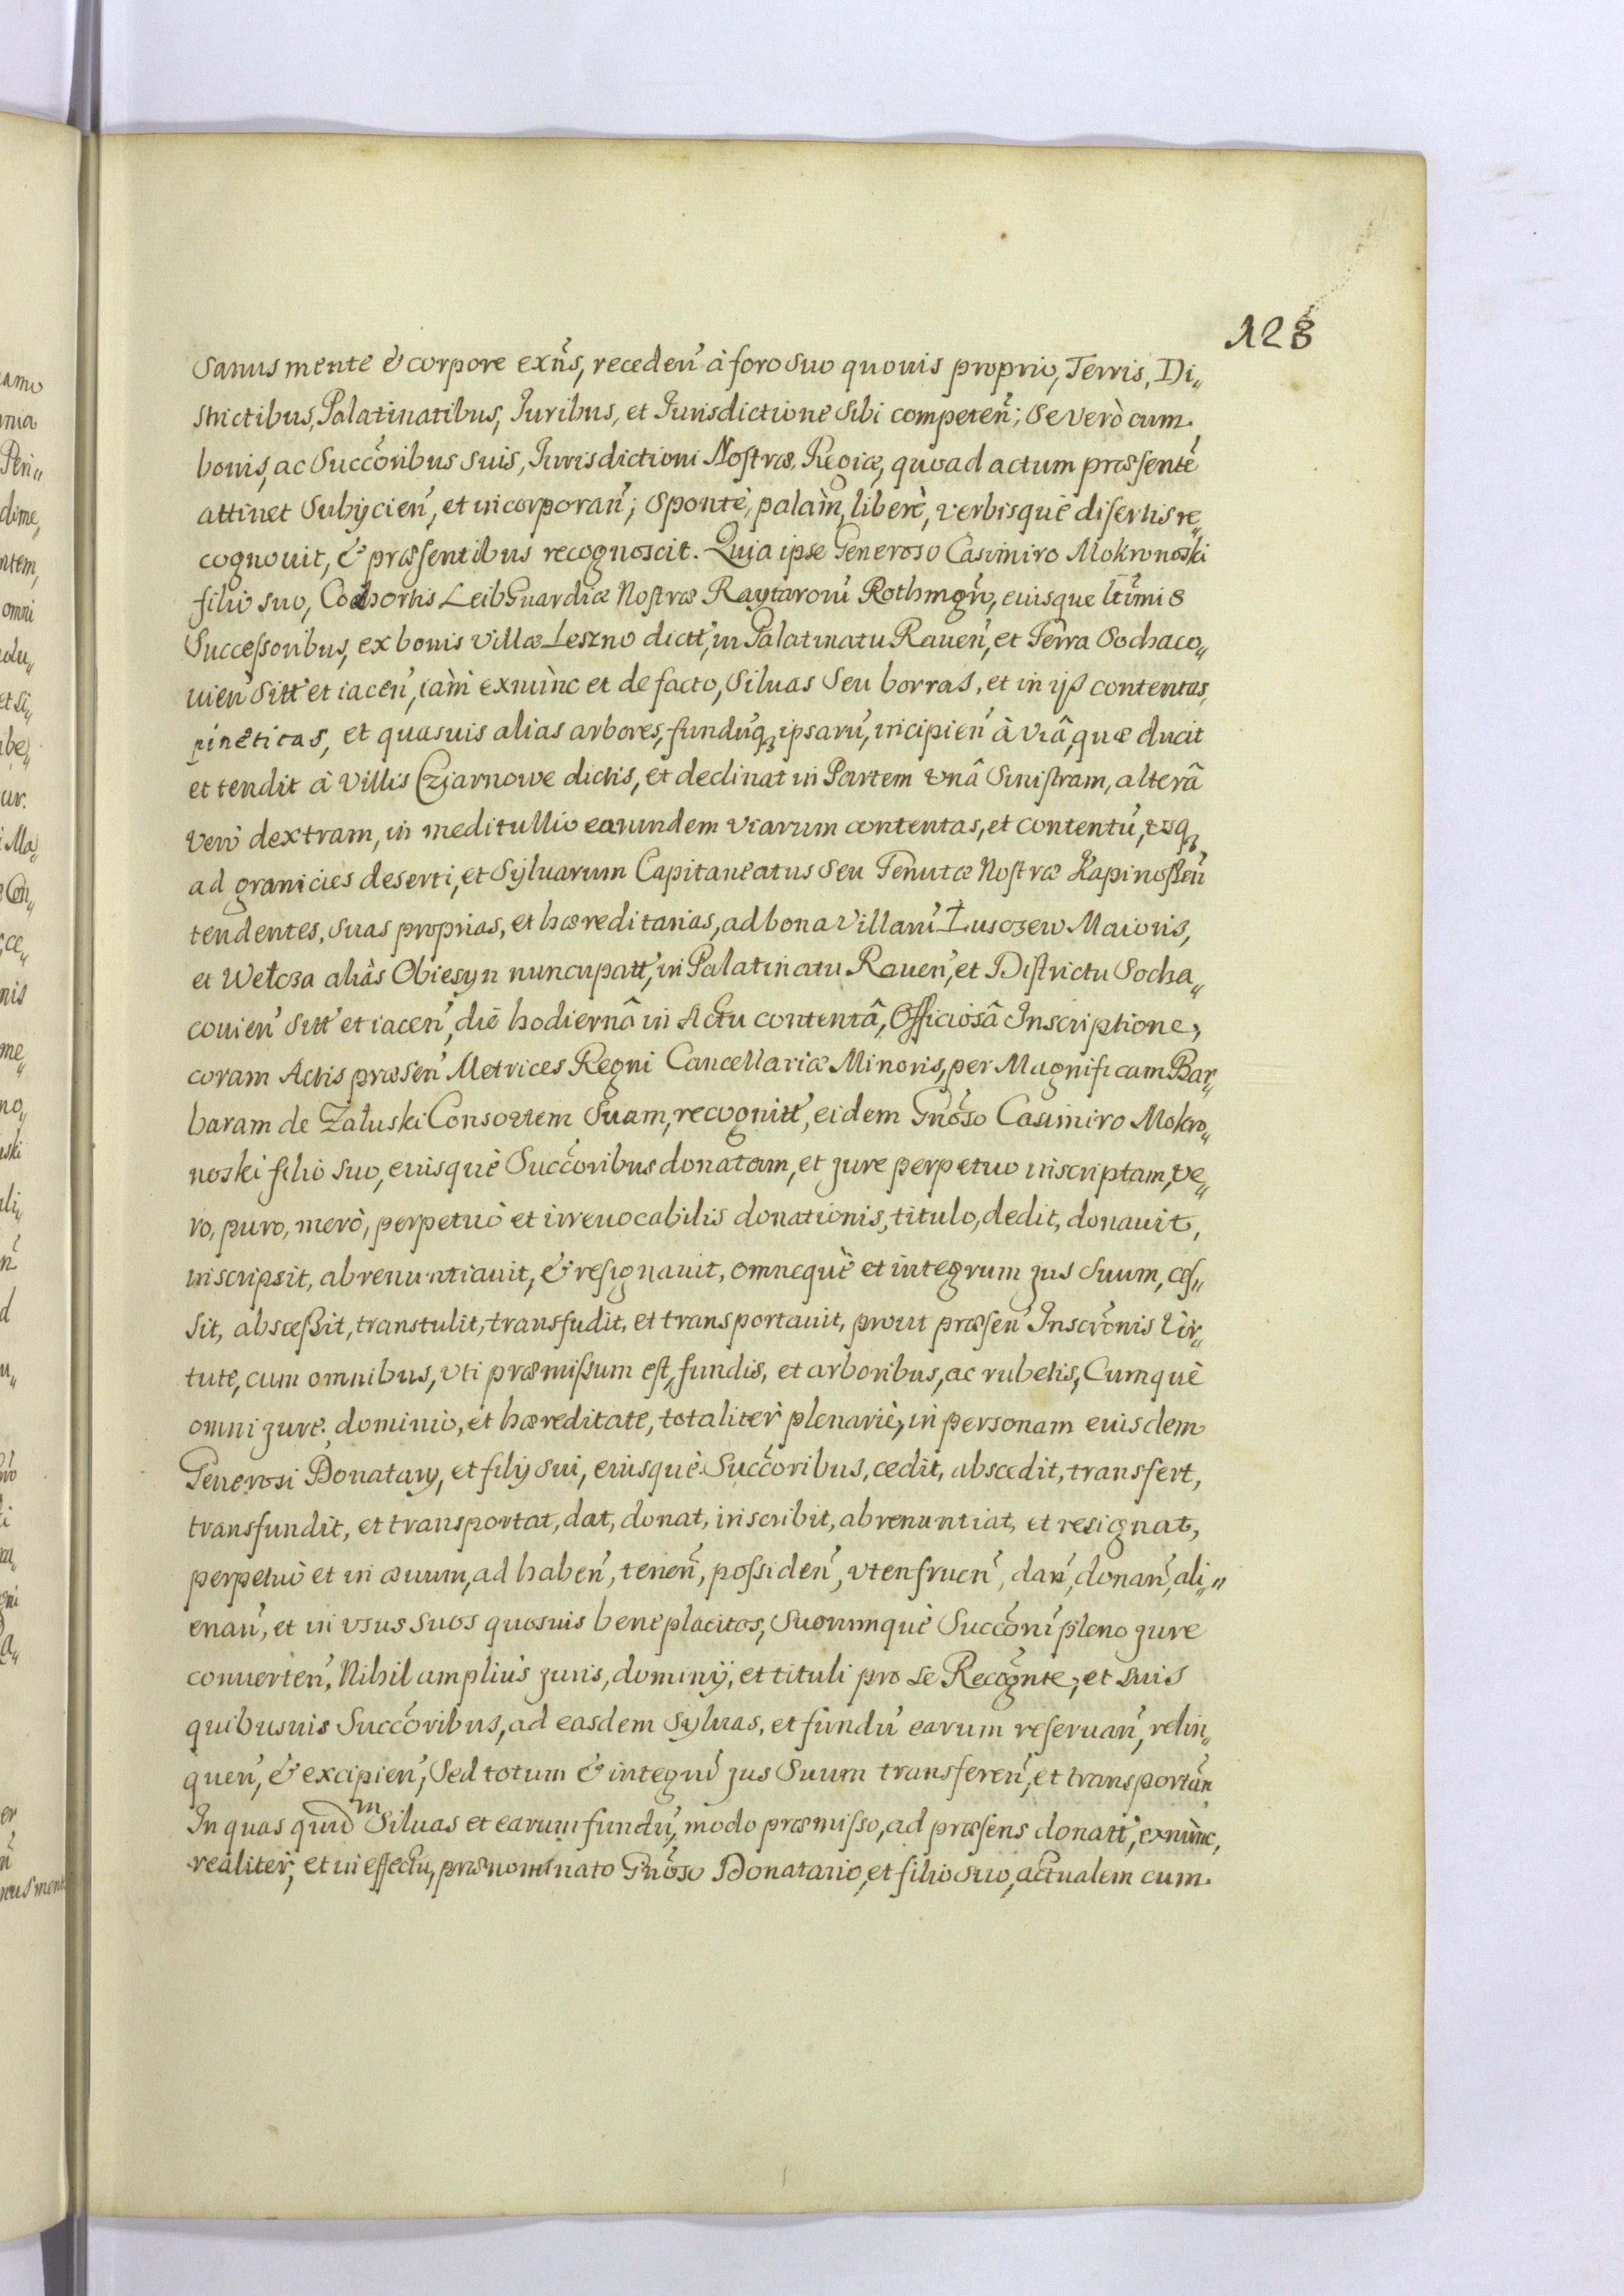 128
Sanus mente & corpore exñs, receden̄ à foro suo quouis proprio, Terris, Di„
strictibus, Palatinatibus, Juribus, et Jurisdictione sibi competen̄; Se verò cum
bonis, ac Succoribus suis, Jurisdictioni Nostræ Regiæ, quoad actum præsentē
attinet Subijcien̄, et incorporan̄; Spontè, palàm, liberè, verbisquè disertis re„
cognouit, & præsentibus recognoscit. Quia ipse Generoso Casimiro Mokronoski
filio suo, Cohortis LeibGuardiæ Nostræ Raytaronū Rothmgrō, eiusque ltīmis
Successoribus, ex bonis Villæ Leszno dictt', in Palatinatu Rauen̄, et Terra Sochaco„
uien̄ Sitt' et iacen̄, iàm exnùnc et de facto, Siluas Seu borras, et in ijs contentas,
pineticas, et quasuis alias arbores, fundūq; ipsarū, incipien̄ à viâ, quæ ducit
et tendit à Villis Czarnowe dictis, et declinat in Partem vnâ Sinistram, alterâ
verò dextram, in meditullio earundem viarum contentas, et contentū, vsq;
ad granicies deserti, et Syluarum Capitaneatus Seu Tenutæ Nostræ Kapinosken̄
tendentes, suas proprias, et hæreditarias, ad bona Villarū Łusczew Maioris,
et Wełcza aliàs Obiesyn nuncupatt', in Palatinatu Rauen̄, et Districtu Socha„
couien̄ Sitt' et iacen̄, diē hodiernâ in Actu contentâ, Officiosâ Inscriptione,
coram Actis præsen̄ Metrices Regni Cancellariæ Minoris, per Magnificam Bar„
baram de Załuski Consortem Suam, recognitt', eidem Gnōso Casimiro Mokro„
noski filio suo, eiusquè Succōribus donatam, et jure perpetuo inscriptam, ve„
ro, puro, merò, perpetuò et irreuocabilis donationis, titulo, dedit, donauit,
inscripsit, abrenuntiauit, & resignauit, omnequè et integrum jus Suum, ces„
sit, abscessit, transtulit, transfudit, et transportauit, prout præsen̄ Inscrōnis vir„
tute, cum omnibus, vti præmissum est, fundis, et arboribus, ac rubetis, Cumquè
omni jure, dominio, et hæreditate, totaliter plenariè, in personam eiusdem
Generosi Donatarij, et filij sui, eiusquè Succōribus, cedit, abscedit, transfert,
transfundit, et transportat, dat, donat, inscribit, abrenuntiat, et resignat,
perpetuò et in æuum, ad haben̄, tenen̄, possiden̄, vtenfruen̄, dan̄, donan̄, ali„
enan̄, et in vsus suos quosuis beneplacitos, Suorumquè Succōrū pleno jure
conuerten̄, Nihil ampliùs juris, dominij, et tituli pro se Recognte, et suis
quibusuis Succōribus, ad easdem Syluas, et fundū earum reseruan̄, relin„
quen̄, & excipien̄, Sed totum & integrū jus Suum transferen̄, et transportan̄
In quas quidm Siluas et earum fundū, modo præmisso, ad præsens donatt', exnùnc,
realiter, et in effectu, prænominato Gnōso Donatario, et filio suo, actualem cum